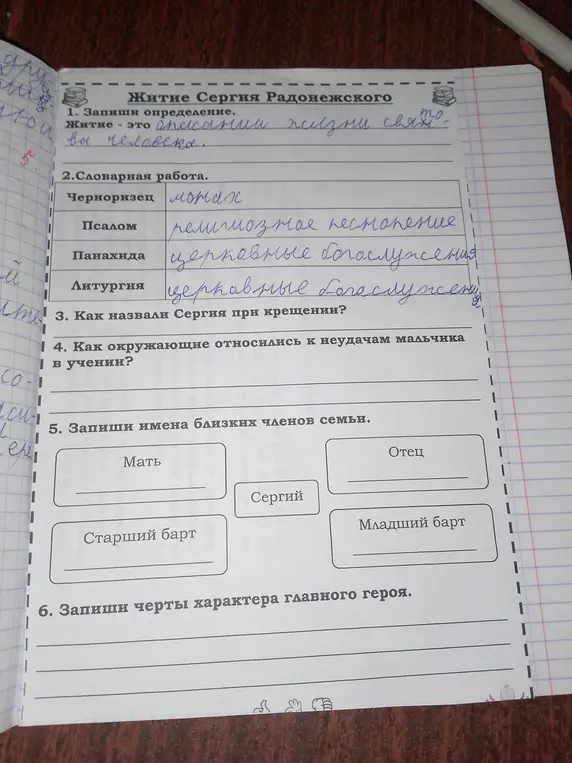 Житие Сергия Радонежского
1. Запиши определение.
Житие - это описании жизни свято-
ва человека.
2.Словарная работа.
Черноризец монах
Псалом религиозное песнопение
Панахида церковные богослужения
Литургия церковные богослужения
3. Как назвали Сергия при крещении?
4. Как окружающие относились к неудачам мальчика
в учении?
5. Запиши имена близких членов семьи.
Мать
Отец
Сергий
Старший барт
Младший барт
6. Запиши черты характера главного героя.
5